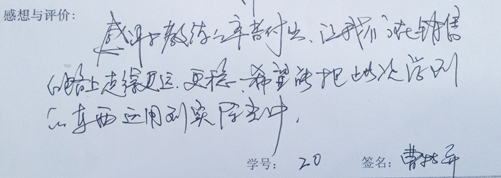 感想与评价:
感谢教练的辛苦付出,让我们在销售
的路上走得更远、更稳,希望能把此次学到
的东西运用到实际当中。
学号: 20 签名: 曹